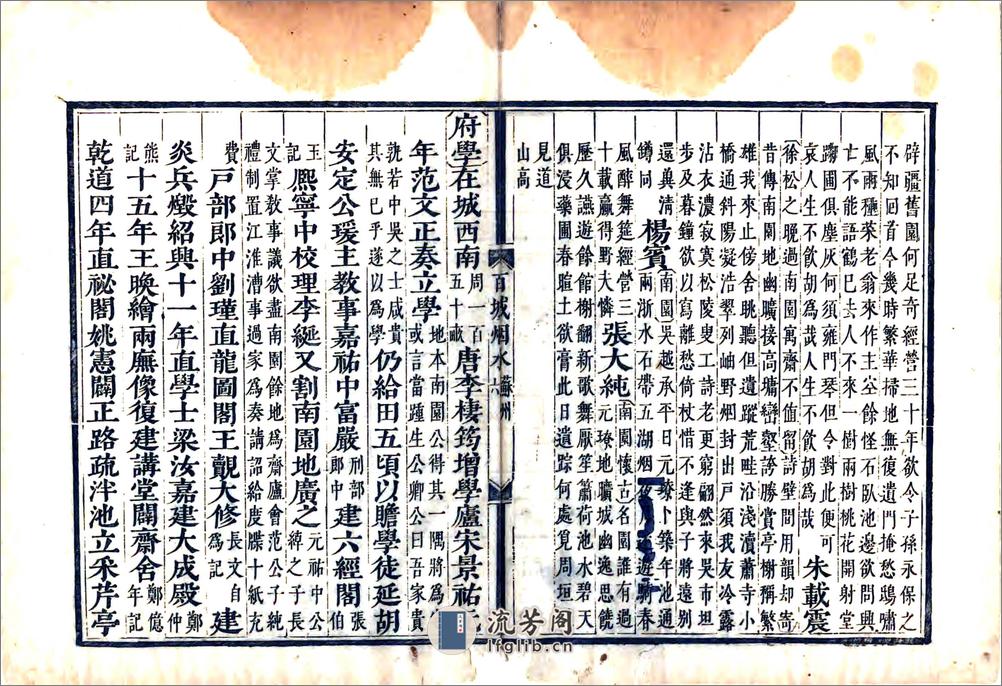 辟疆舊園何足奇經營三十年欲令子孫永保之
不知回首今幾時繁華掃地無復遺門掩愁鴟嘯
風雨種來老翁來作主至餘怪石臥池邊欲問興
亡不能語鶴已去人不來一樹兩樹桃花開射堂
躑圃俱塵灰何須雍門琴但令對此便可
哀人生不飲胡為哉人生不飲胡為哉 朱載震
徐松之晚過南園寓齋不值留詩壁間用韻却寄
昔傳南園地幽曠接高墉巒壑誇勝賞亭榭稱繁
雄我來止傍舍眺聽但遺蹤荒畦沿淺瀆蕭寺小
橋通斜陽凝浩翠列岫野烟封出戶須我友冷露
沾衣濃寂寞松陵叟工詩老更窮翩然來吳市坦
步及暮鐘欲以寫離愁倚杖惜不逢與子將遠別
還冀清
鐏同 楊賓 南園吳越承平日元璙卜築年池通
兩浙水石帶五湖烟夜月遊騎春
風醉舞筵經營三
十載贏得野夫憐 張大純 南園懷古名園誰有過
元璙地曠城幽逸思饒
歷久讌遊餘館榭翻新歌舞厭笙簫荷池水碧天
俱浸藥圃春暄土欲膏此日遺踪何處覓周垣
見道
山高
百城烟水 蘇州 六
府學在城西南周一百五十畝唐李棲筠增學廬宋景祐
年范文正奏立學地本南園公得其一隅將為或言當踵生公卿公曰吾家貴
孰若中吳之士咸貴其無已乎遂以為學仍給田五頃以贍學徒延胡
安定公瑗主教事嘉祐中富嚴刑部郎中建六經閣張伯
王公記熙寧中校理李綖又割南園地廣之元祐中公緯之子長
文掌教事議欲盡南園餘地為齋廬會范公子純禮制置江淮漕事過家為奏請詔給度牒十紙充
費戶部郎中劉瑾直龍圖閣王覿大修長文自為記建
炎兵燬紹興十一年直學士梁汝嘉建大成殿鄭仲
熊記十五年王㬇繪兩廡像復建講堂闢齋舍鄭億年記
乾道四年直祕閣姚憲闢正路疏泮池立采芹亭
流芳阁
lfglib.cn